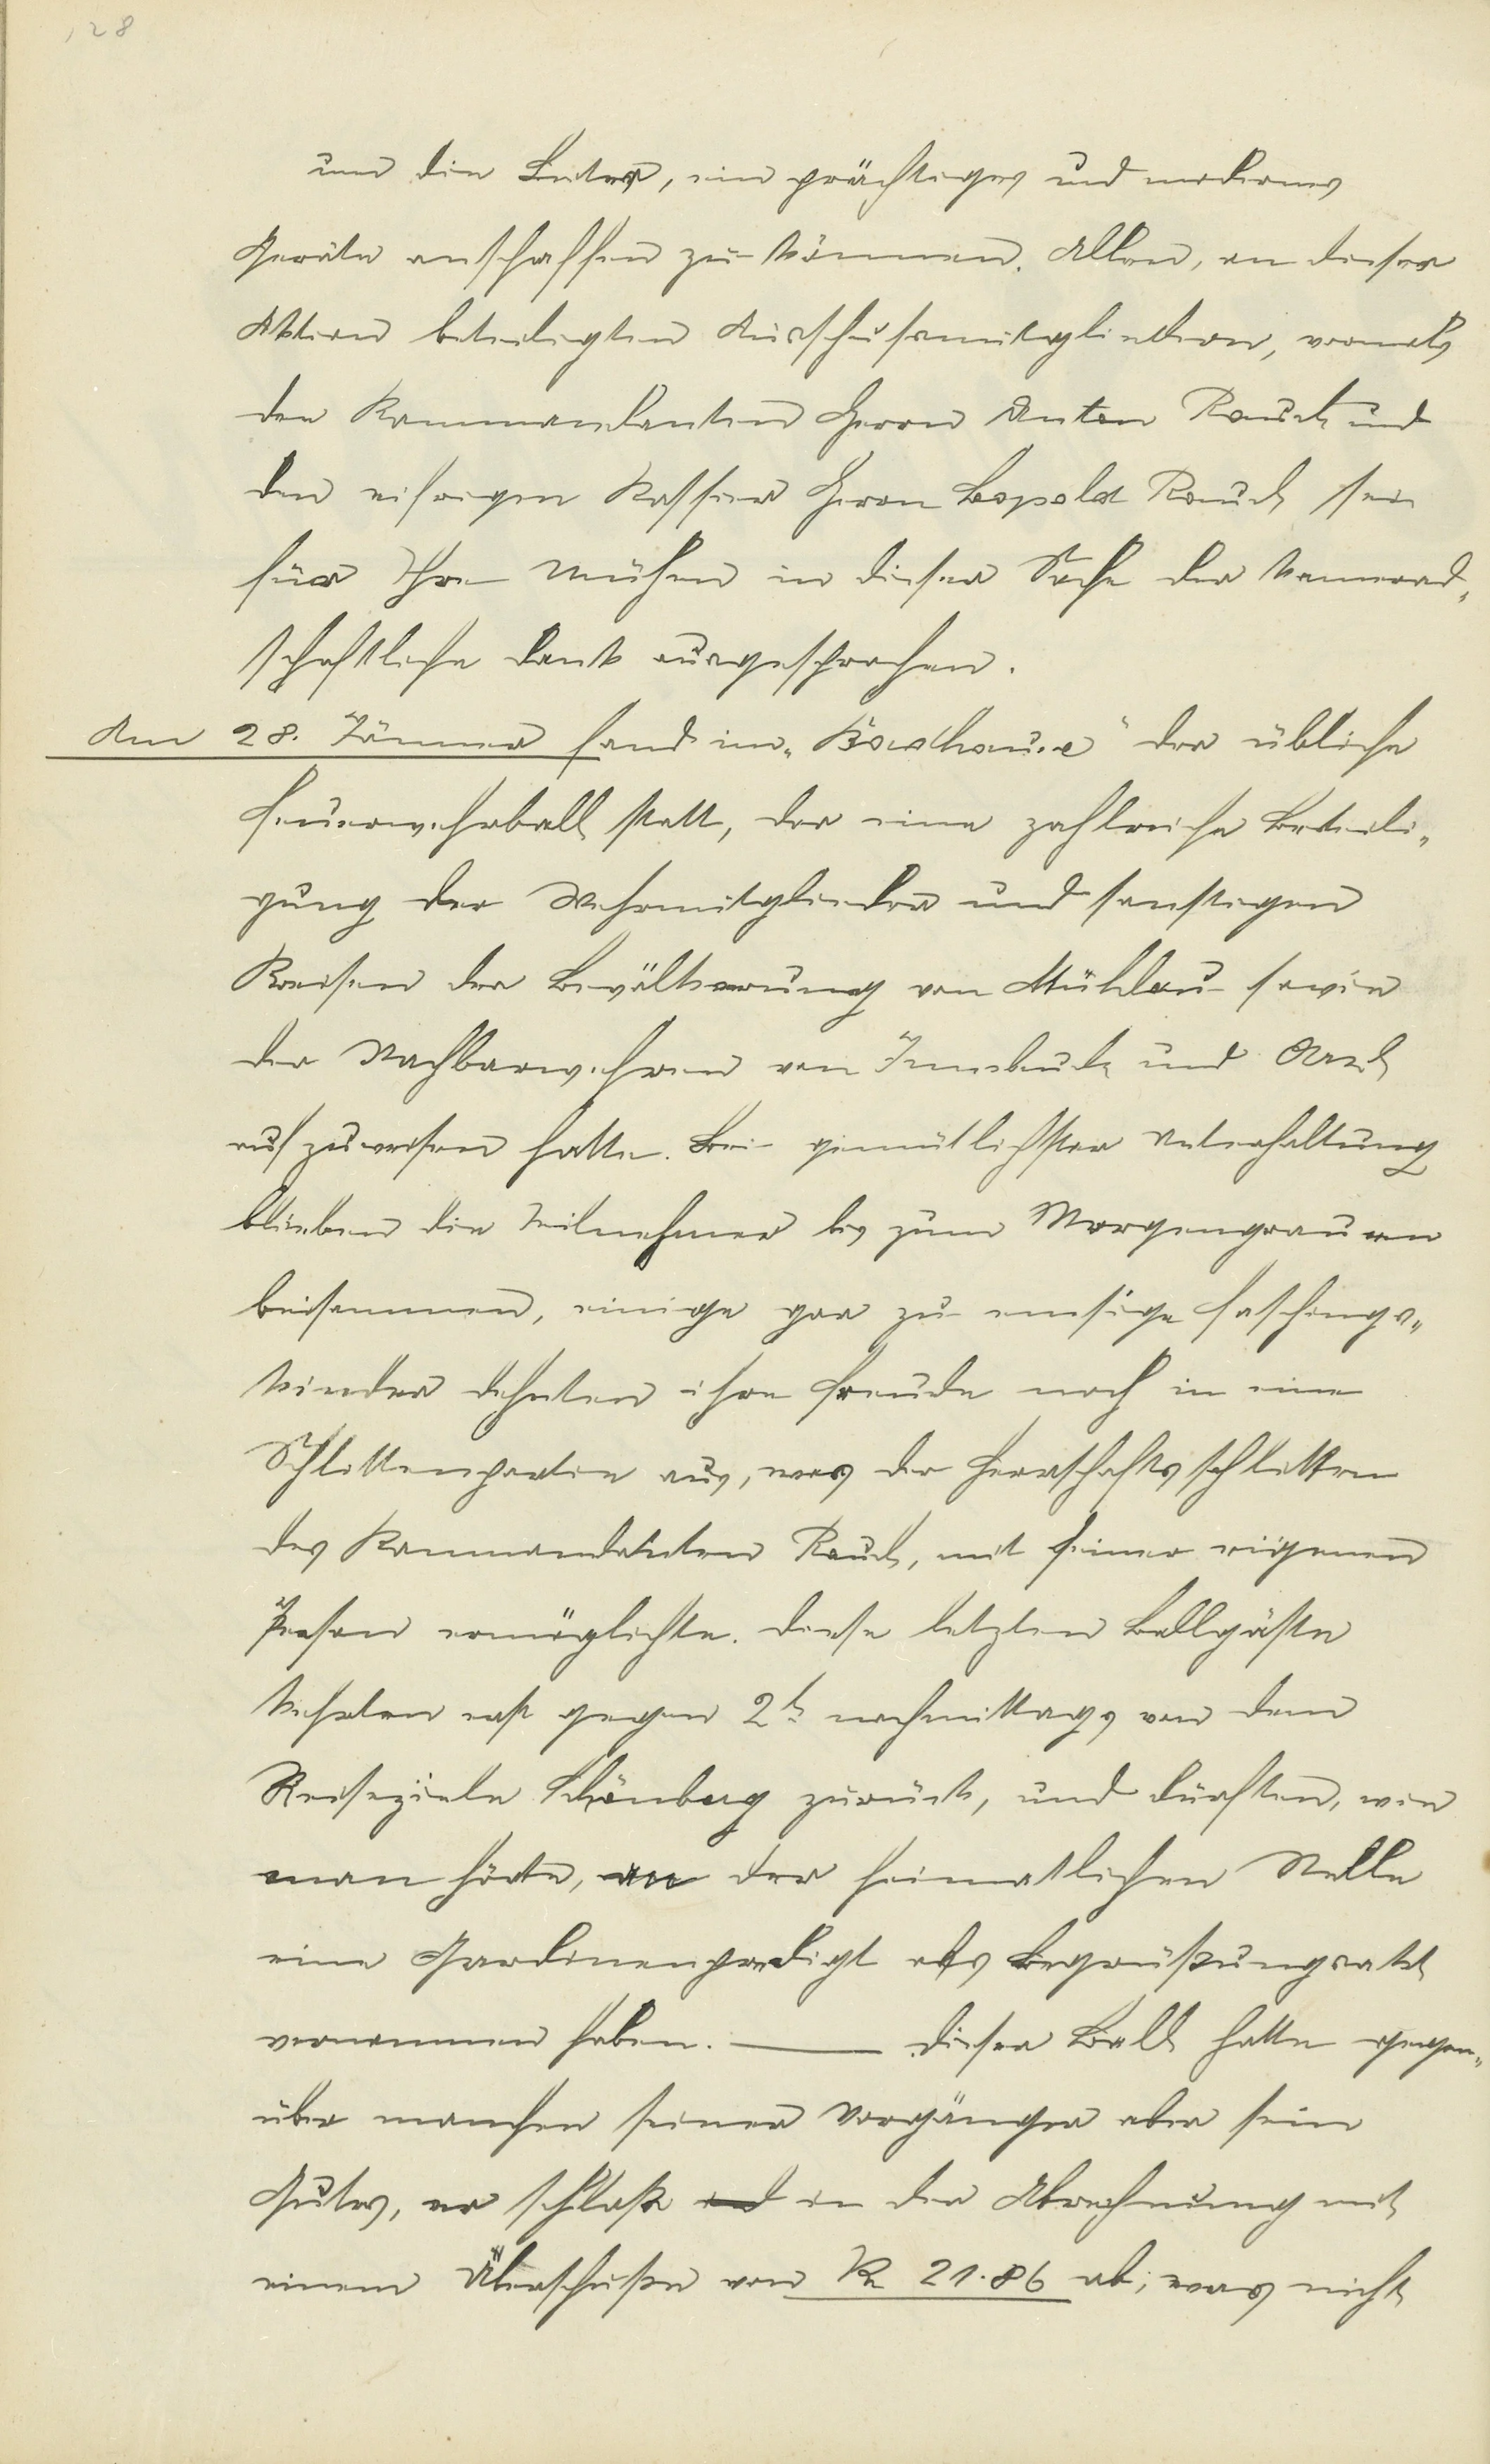 128
um die Leiter, ein prächtiges und modernes
Geräte anschaffen zu können. Allen, an dieser
Aktion beteiligten Ausschussmitgliedern, vornehml.
den Kommandanten Herrn Anton Rauch und
den eifrigen Kassier Herrn Leopold Rauch sei
für Ihre Mühen in dieser Sache der kamerad„
schaftliche Dank ausgesprochen.
Am 28. Jänner fand im „Badhause“ der übliche
Feuerwehrball statt, der eine zahlreiche Beteili„
gung der Wehrmitglieder und sonstigen
Kreisen der Bevölkerung von Mühlau sowie
der Nachbarwehren von Innsbruck und Arzl
aufzuweisen hatte. Bei gemütlichster Unterhaltung
blieben die Teilnehmer bis zum Morgengrauen
beisammen, einige gar zu emsige Faschings„
kinder dehnten ihre Freude noch in eine
Schlittenpartie aus, was der Herrschaftsschlitten
des Kommandanten Rauch, mit seiner eigenen
Person ermöglichte. Diese letzten Ballgäste
kehrten erst gegen 2h nachmittags von dem
Reiseziele Schönberg zurück, und dürften, wie
man hörte, an der heimatlichen Stelle
eine Gardinenpredigt als Begrüßungsakt
vernommen haben. — Dieser Ball hatte gegen„
über manchen seiner Vorgänger aber sein
Gutes, er schloß in der Abrechnung mit
einem Überschuße von K 21.86 ab; was nicht